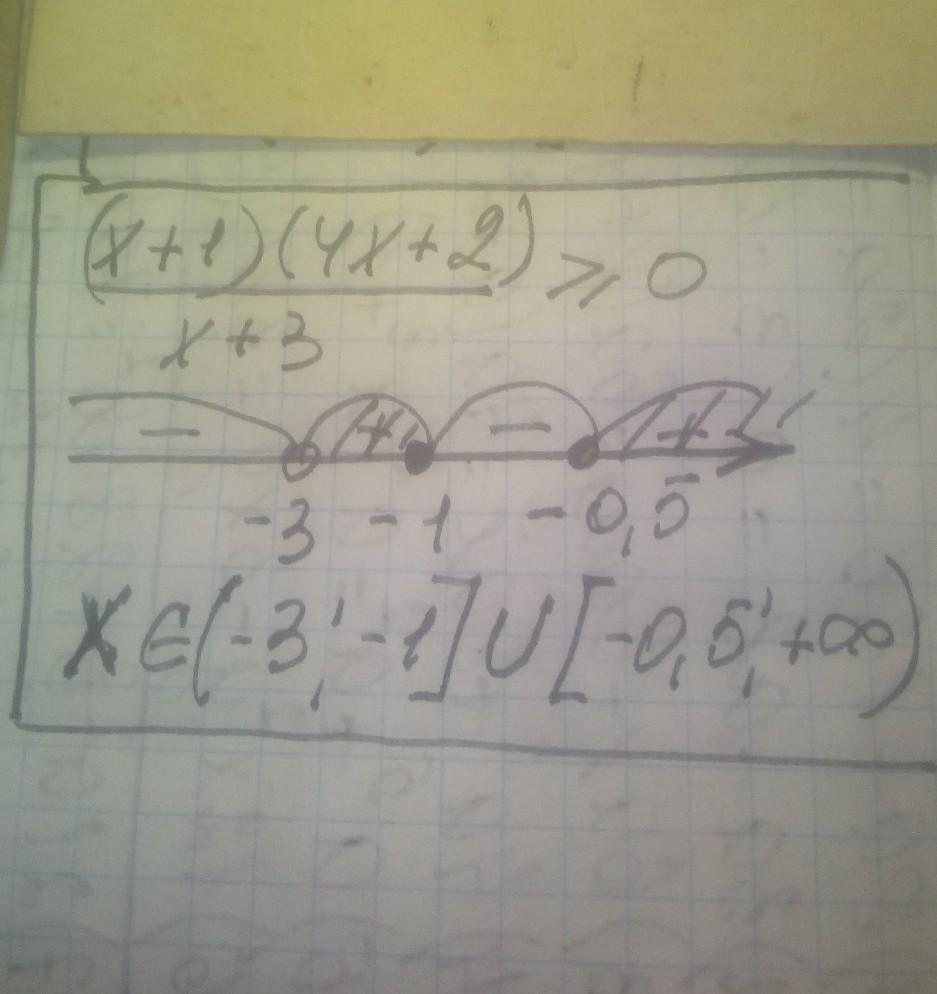 (x+1)(4x+2)
x+3
⩾ 0
− + − +
-3 -1 -0,5
X∈(-3; -1]∪[-0,5; +∞)